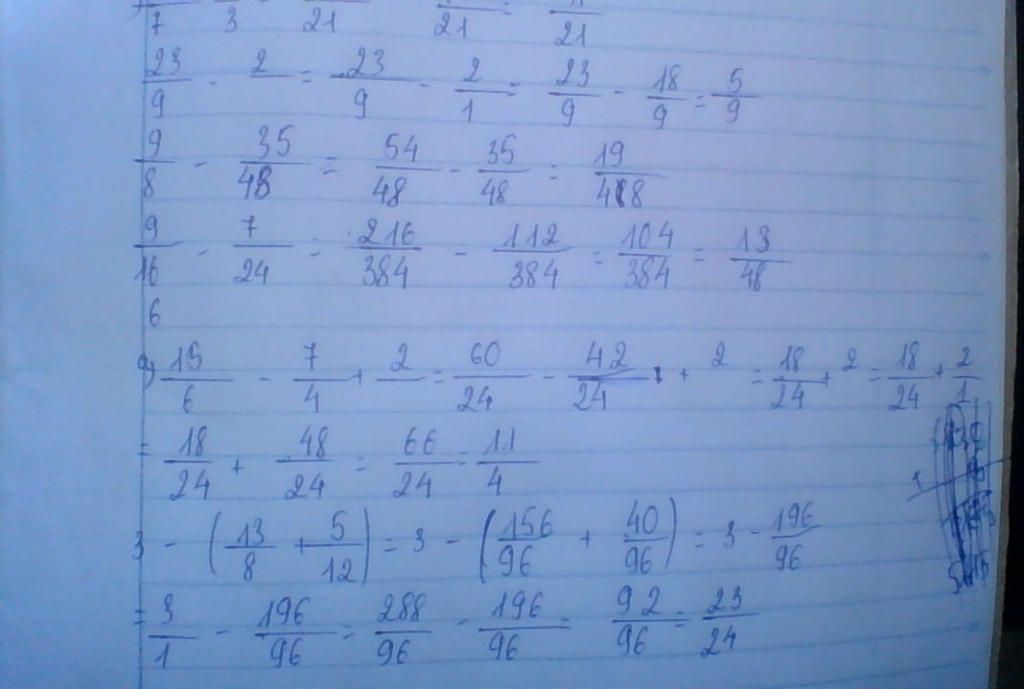 7/3 21 21 = 21
23/9 - 2 = 23/9 - 2/1 = 23/9 - 18/9 = 5/9
9/8 - 35/48 = 54/48 - 35/48 = 19/48
9/16 - 7/24 = 216/384 - 112/384 = 104/384 = 13/48
6
15/6 - 7/4 + 2 = 60/24 - 42/24 + 2 = 18/24 + 2 = 18/24 + 2/1
= 18/24 + 48/24 = 66/24 = 11/4
3 - (13/8 + 5/12) = 3 - (156/96 + 40/96) = 3 - 196/96
= 3/1 - 196/96 = 288/96 - 196/96 = 92/96 = 23/24